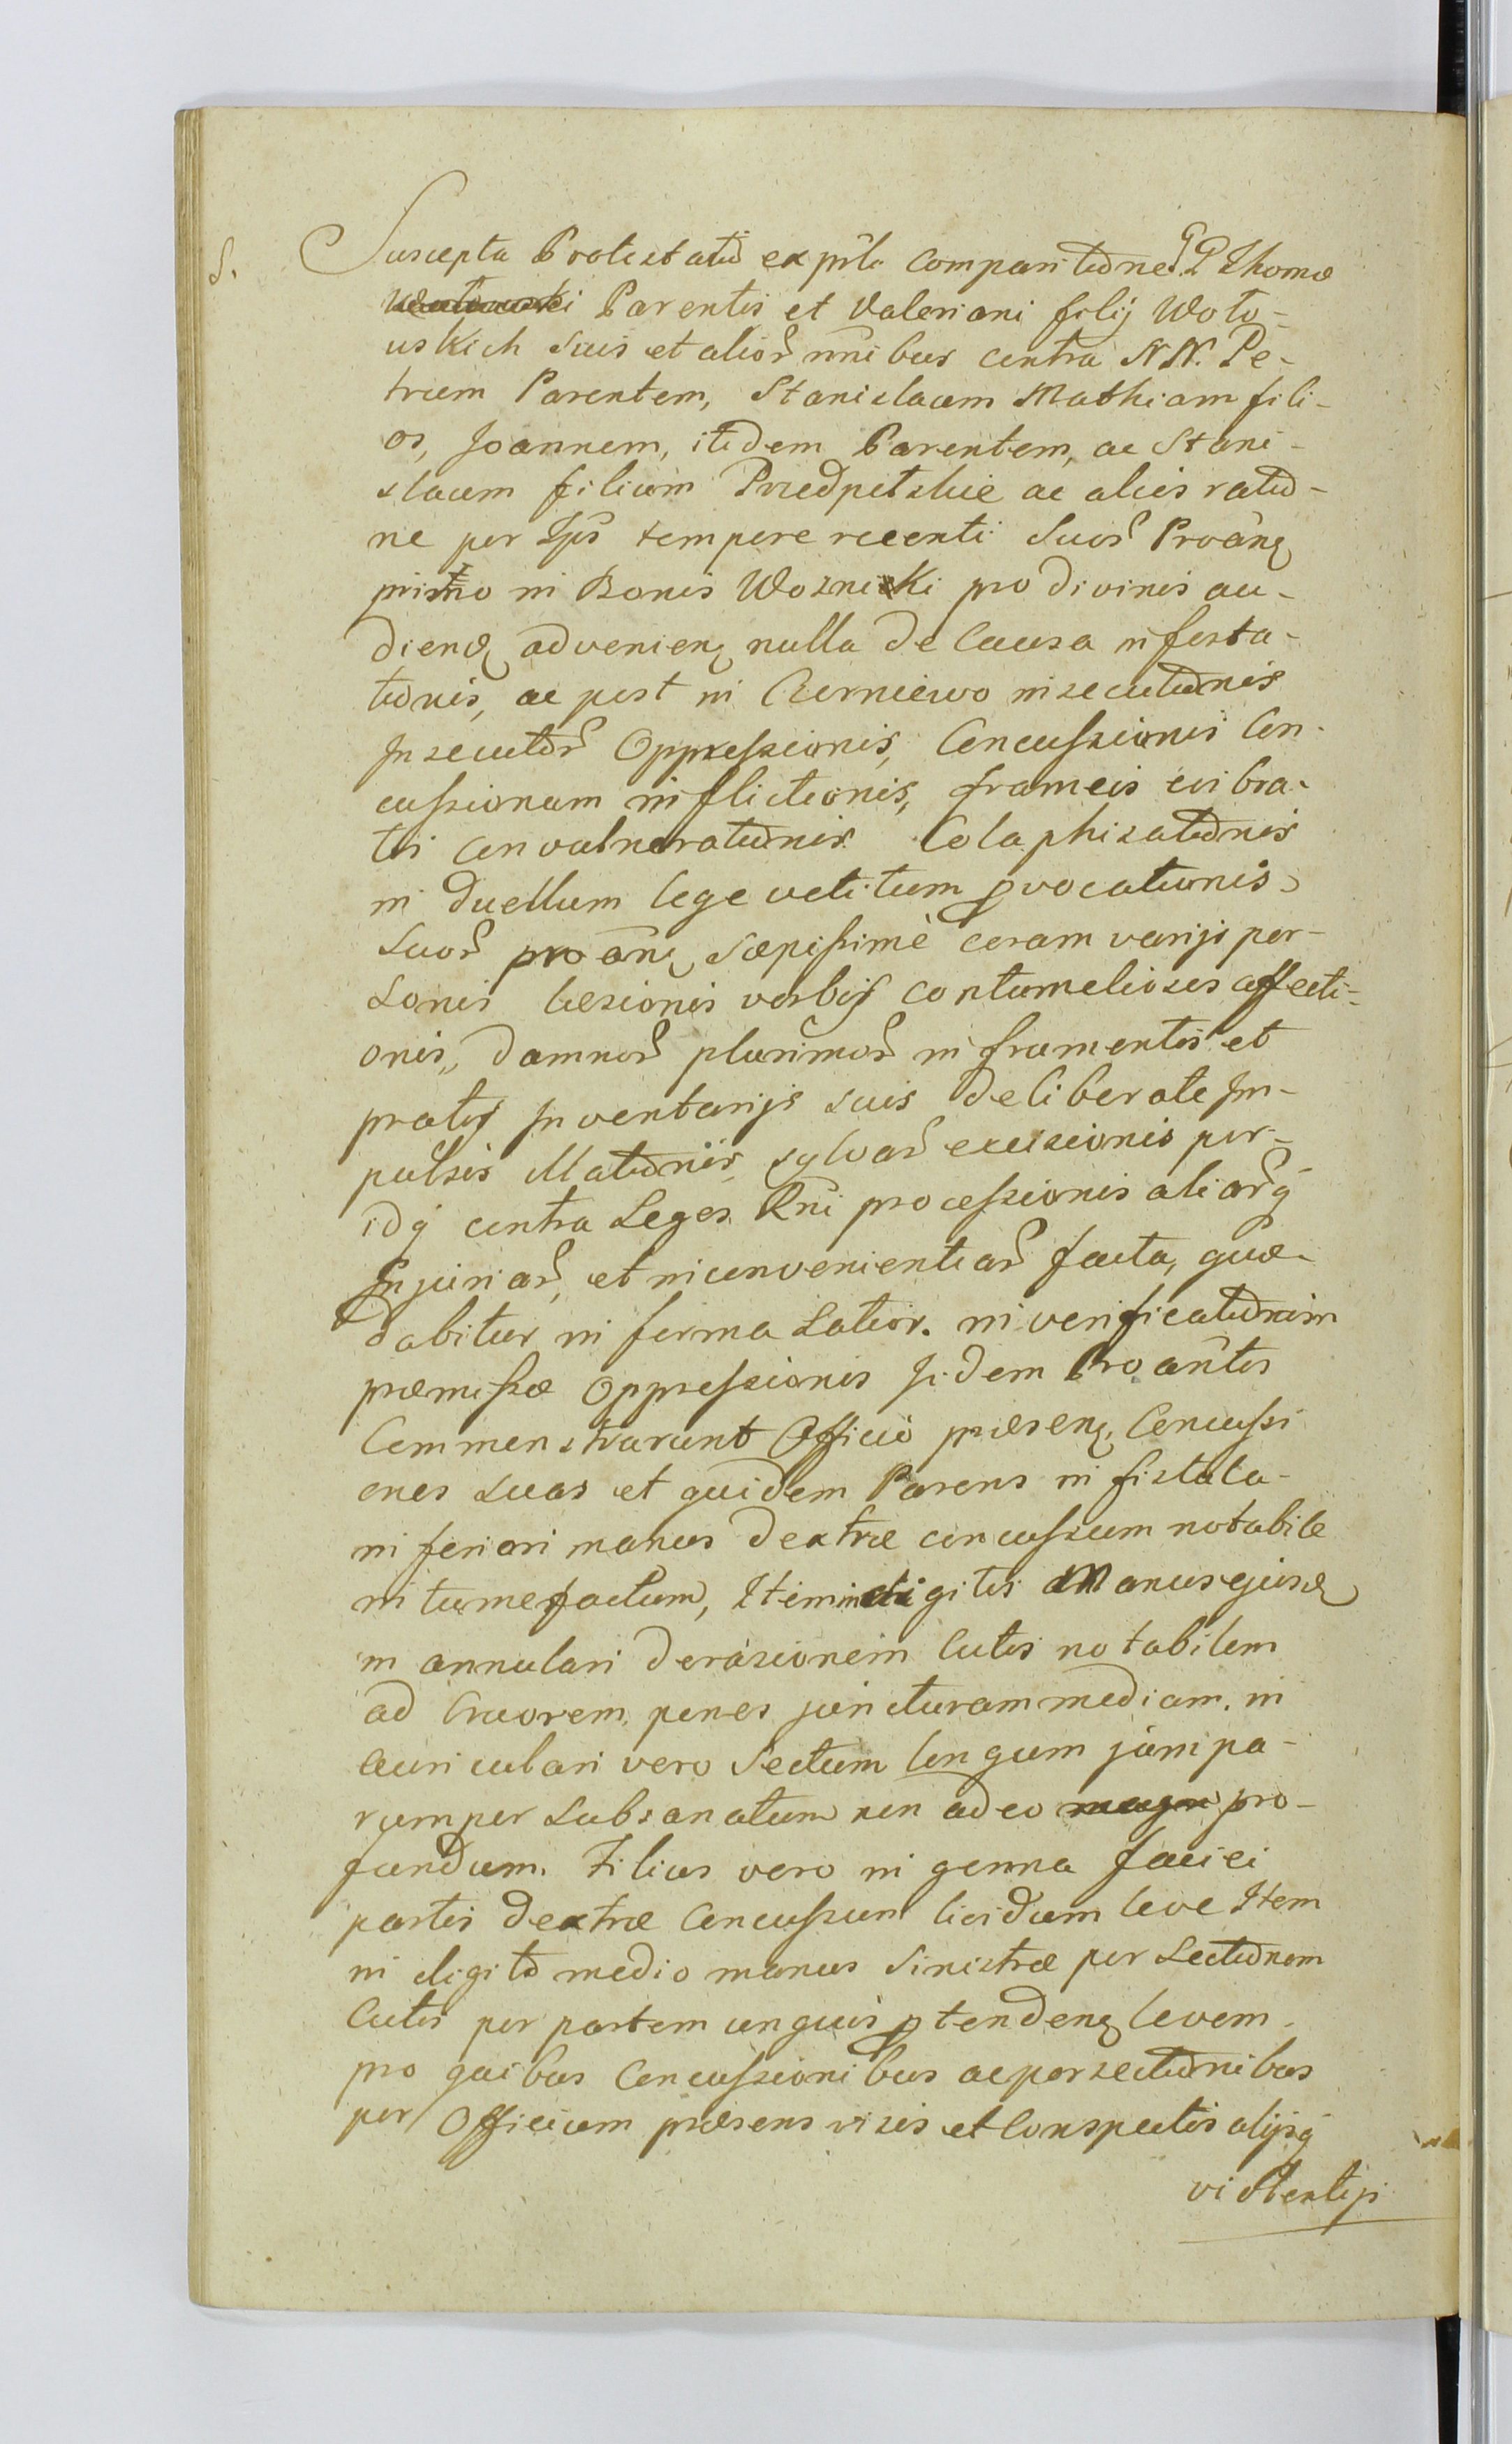 S. Suscepta Protestatio ex psti comparitione GG Thomæ
Parentis et Valeriani filij Woto-
uskich suis et alior nnibus contra NN. Pe-
trum Parentem, Stanislaum Mathiam fili-
os, Joannem, itidem Parentem, ac Stani-
slaum filium ac alios ratio-
ne per Ipos tempore recenti suor Proanq
primo in Bonis Woznicki pro divinis au-
diendq advenienq nulla de Causa infesta-
tionis, ac post in Czerniewo insecutionis
Insecutor Oppressionis, Concussionis Con-
cussionum inflictionis, frameis evibra-
tis convulnerationis Colaphisationis
in duellum lege vetitum provocationis
suor proanq sæpissimè coram varijs per-
sonis læsionis verbis contumeliosis affecti-
onis, damnor plurimor in frumentis et
pratis Inventarijs suis deliberate Im-
pulsis Illationis, sylvar excisionis per-
idq contra Leges Rni processionis aliarq
Injuriar, et inconvenientiar facta, quæ
dabitur in forma Latior. in verificationem
præmissæ Oppressionis Iidem Proantes
Commonstrarunt Officio præsenq Concussi
ones suas et quidem Parens in fistula
inferiori manus dextræ concussum notabile
intumefactum, Item in digitis Manus ejusd
in annulari derasionem Cutis notabilem
ad Cruorem penes juncturam mediam. in
auriculari vero Sectum longum jam pa-
rumper subsanatum non adeo pro-
fundum. Filius vero in genna faciei
partis dextræ Concussum lividum leve Item
in digito medio manus sinistræ per Sectionem
Cutis per partem unguis ptendenq levem.
pro quibus Concussionibus ac persectionibus
per Officium præsens visis et Conspectis alijsq
violentijs